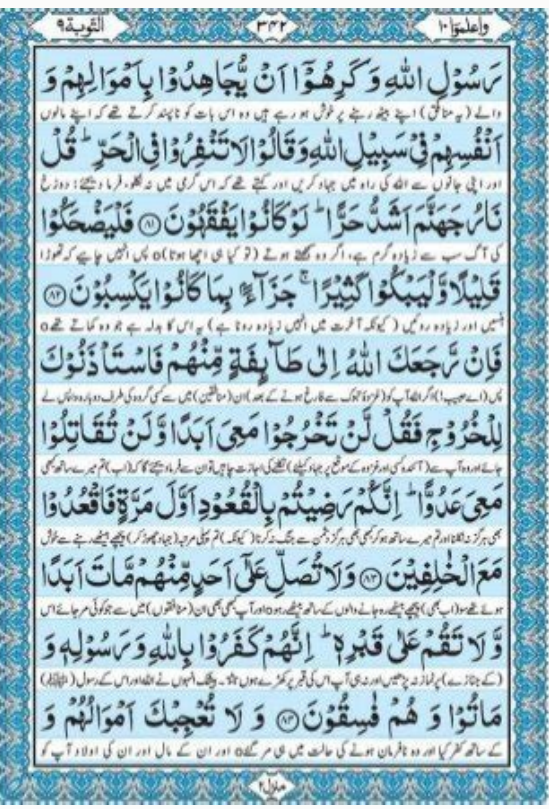 واعلموا ۱۰ ۳۴۲ التوبة ۹
رَسُوْلِ اللهِ وَ كَرِهُوْۤا اَنْ يُّجَاهِدُوْا بِاَمْوَالِهِمْ وَ
والے (یہ منافق) اپنے بیٹھ رہنے پر خوش ہو رہے ہیں وہ اس بات کو ناپسند کرتے تھے کہ اپنے مالوں
اَنْفُسِهِمْ فِيْ سَبِيْلِ اللهِ وَ قَالُوْا لَا تَنْفِرُوْا فِي الْحَرِّ ؕ قُلْ
اور اپنی جانوں سے اللہ کی راہ میں جہاد کریں اور کہتے تھے کہ اس گرمی میں نہ نکلو، فرما دیجئے: دوزخ
نَارُ جَهَنَّمَ اَشَدُّ حَرًّا ؕ لَوْ كَانُوْا يَفْقَهُوْنَ ﴿۸۱﴾ فَلْيَضْحَكُوْا
کی آگ سب سے زیادہ گرم ہے، اگر وہ سمجھتے ہوتے (تو کیا ہی اچھا ہوتا)o پس انہیں چاہیے کہ تھوڑا
قَلِيْلًا وَّ لْيَبْكُوْا كَثِيْرًا ۚ جَزَآءًۢ بِمَا كَانُوْا يَكْسِبُوْنَ ﴿۸۲﴾
ہنسیں اور زیادہ روئیں (کیونکہ آخرت میں انہیں زیادہ رونا ہے) یہ اس کا بدلہ ہے جو وہ کماتے تھےo
فَاِنْ رَّجَعَكَ اللهُ اِلٰى طَآىِٕفَةٍ مِّنْهُمْ فَاسْتَاْذَنُوْكَ
پس (اے حبیب!) اگر اللہ آپ کو (غزوۂ تبوک سے فارغ ہونے کے بعد) ان (منافقین) میں سے کسی گروہ کی طرف دوبارہ واپس لے
لِلْخُرُوْجِ فَقُلْ لَّنْ تَخْرُجُوْا مَعِيَ اَبَدًا وَّ لَنْ تُقَاتِلُوْا
جائے اور وہ آپ سے (آئندہ کسی اور غزوہ کے موقع پر جہاد کیلئے) نکلنے کی اجازت چاہیں تو ان سے فرما دیجئے گا کہ (اب) تم میرے ساتھ کبھی
مَعِيَ عَدُوًّا ؕ اِنَّكُمْ رَضِيْتُمْ بِالْقُعُوْدِ اَوَّلَ مَرَّةٍ فَاقْعُدُوْا
بھی ہرگز نہ نکلنا اور تم میرے ساتھ ہو کر کبھی بھی ہرگز دشمن سے جنگ نہ کرنا (کیونکہ) تم پہلی مرتبہ (جہاد چھوڑ کر) پیچھے بیٹھے رہنے سے خوش
مَعَ الْخٰلِفِيْنَ ﴿۸۳﴾ وَ لَا تُصَلِّ عَلٰۤى اَحَدٍ مِّنْهُمْ مَّاتَ اَبَدًا
ہوئے تھے سو (اب بھی) پیچھے بیٹھے رہ جانے والوں کے ساتھ بیٹھے رہوo اور آپ کبھی بھی ان (منافقوں) میں سے جو کوئی مر جائے اس
وَّ لَا تَقُمْ عَلٰى قَبْرِهٖ ؕ اِنَّهُمْ كَفَرُوْا بِاللهِ وَ رَسُوْلِهٖ وَ
(کے جنازے) پر نماز نہ پڑھیں اور نہ ہی آپ اس کی قبر پر کھڑے ہوں ۔ بیشک انہوں نے اللہ اور اس کے رسول (ﷺ)
مَاتُوْا وَ هُمْ فٰسِقُوْنَ ﴿۸۴﴾ وَ لَا تُعْجِبْكَ اَمْوَالُهُمْ وَ
کے ساتھ کفر کیا اور وہ نافرمان ہونے کی حالت میں ہی مر گئےo اور ان کے مال اور ان کی اولاد آپ کو
منزل ۲